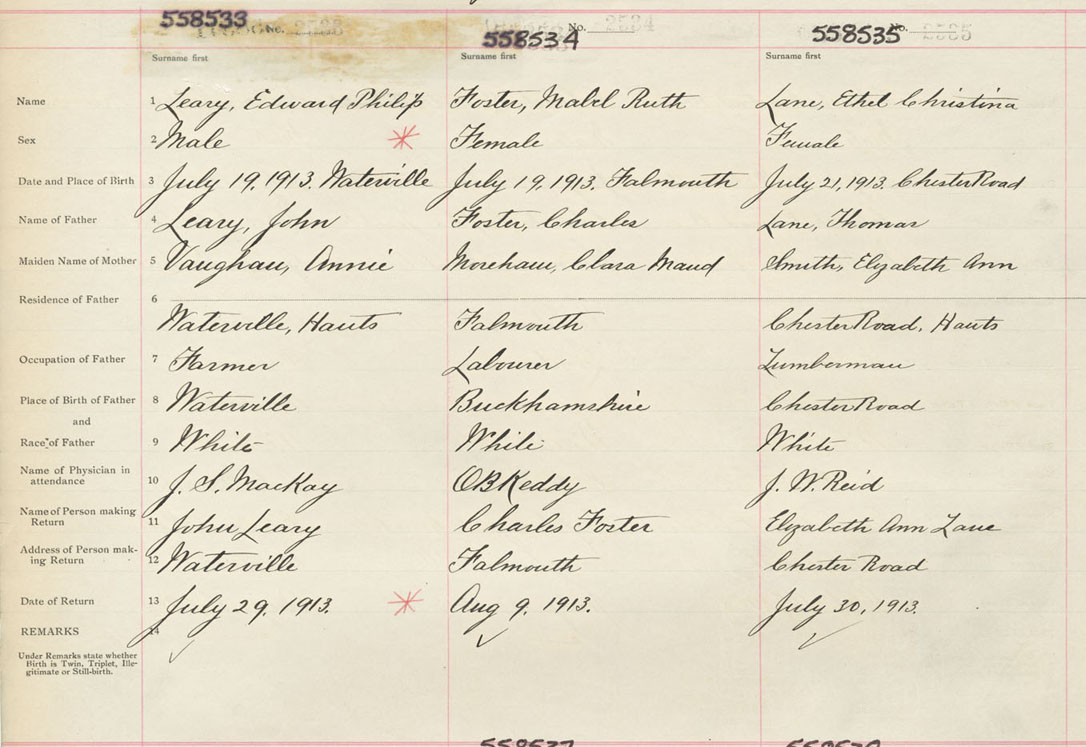 558533 No. 2583 558534 No. 2584 558535 No. 2585
Surname first Surname first Surname first
Name 1 Leary, Edward Philip Foster, Mabel Ruth Lane, Ethel Christina
Sex 2 Male Female Female
Date and Place of Birth 3 July 19, 1913. Waterville July 19, 1913. Falmouth July 21, 1913. Chester Road
Name of Father 4 Leary, John Foster, Charles Lane, Thomas
Maiden Name of Mother 5 Vaughan, Annie Moreham, Clara Maud Smith, Elizabeth Ann
Residence of Father 6
Waterville, Hants Falmouth Chester Road, Hants
Occupation of Father 7 Farmer Labourer Lumberman
Place of Birth of Father 8 Waterville Buckhamshire Chester Road
and
Race of Father 9 White White White
Name of Physician in
attendance 10 J. S. MacKay OBKeddy J. W. Reid
Name of Person making
Return 11 John Leary Charles Foster Elizabeth Ann Lane
Address of Person mak-
ing Return 12 Waterville Falmouth Chester Road
Date of Return 13 July 29, 1913. Aug 9, 1913. July 30, 1913.
REMARKS 14
Under Remarks state whether
Birth is Twin, Triplet, Ille-
gitimate or Still-birth.